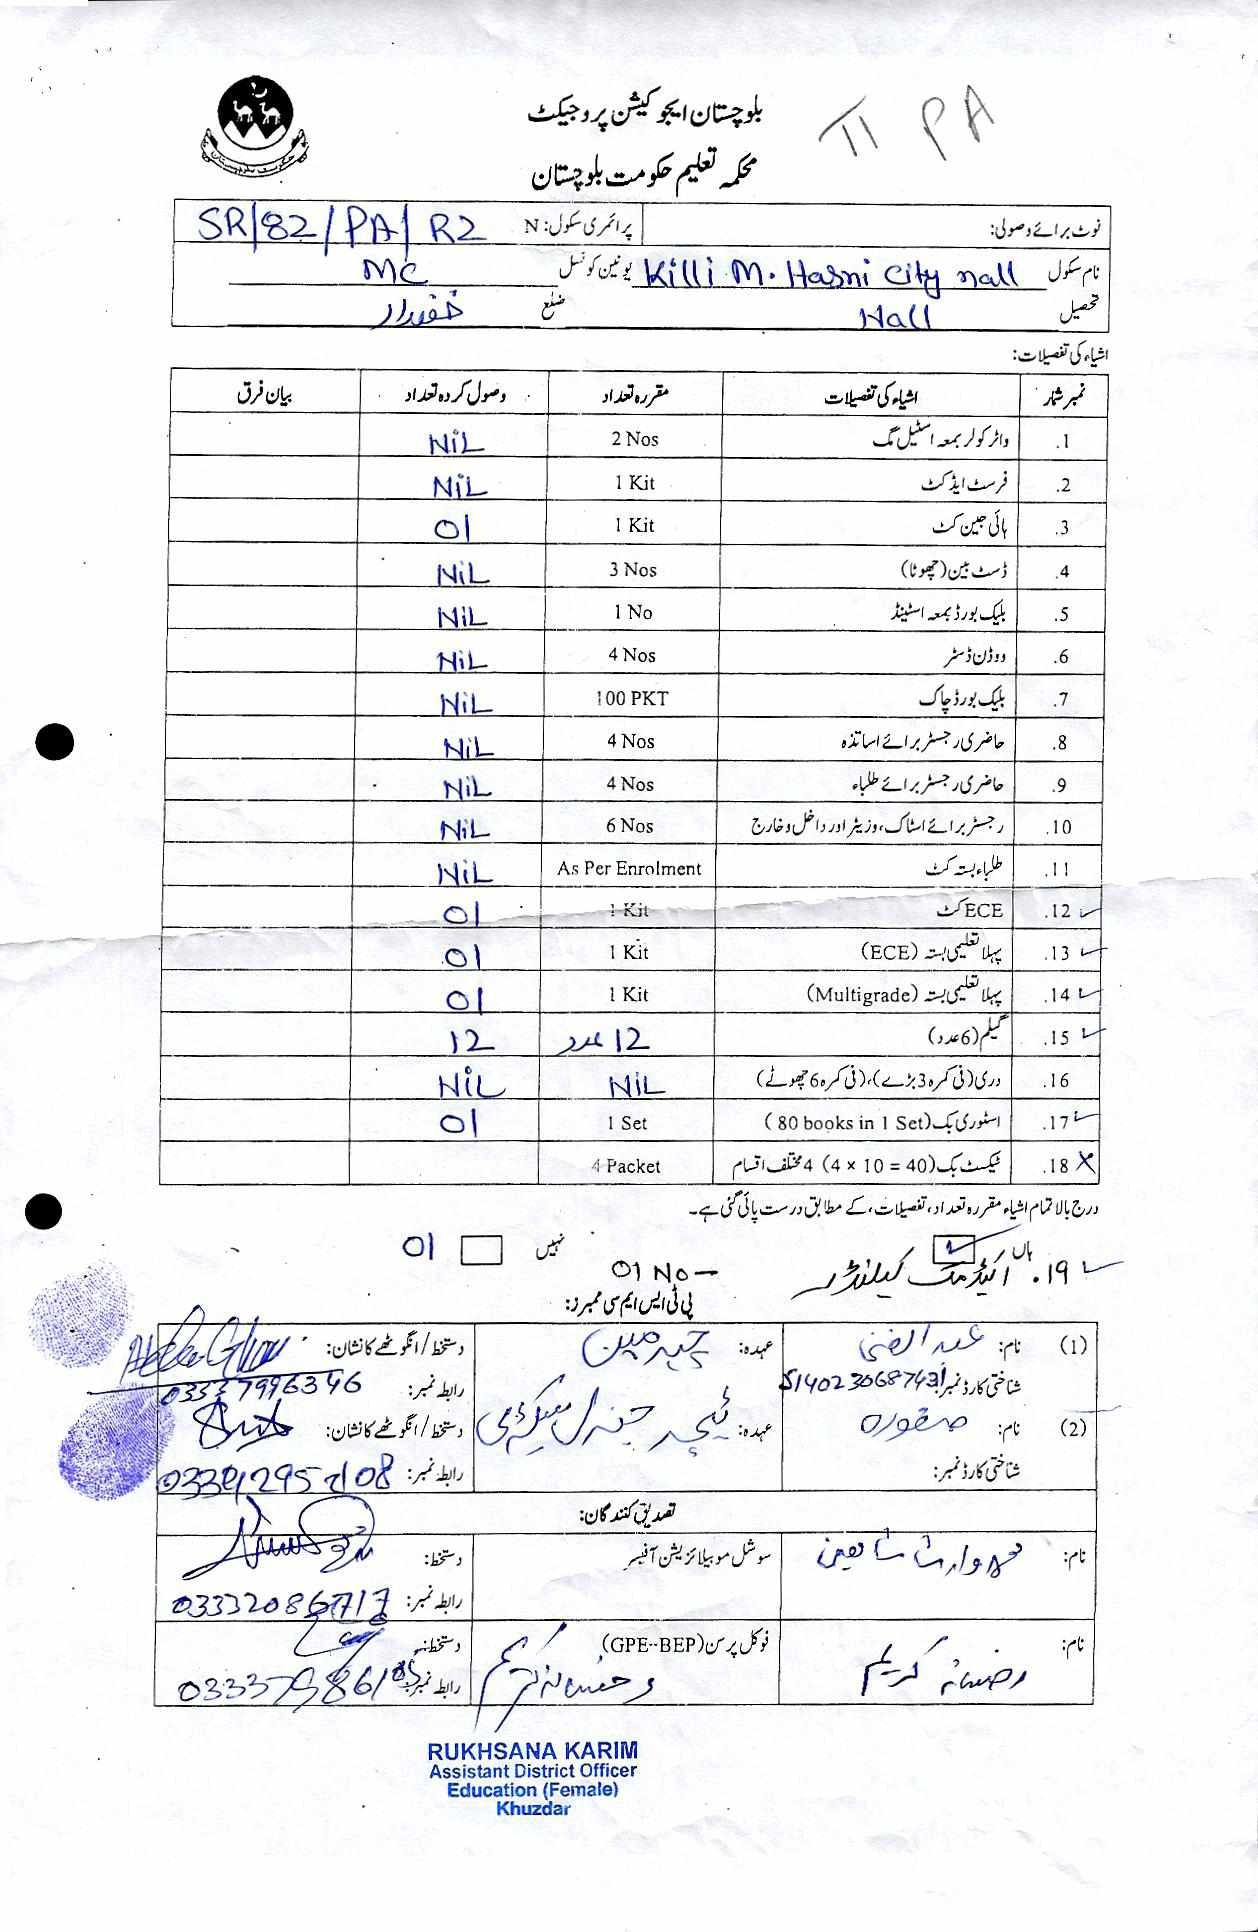 بلوچستان ایجوکیشن پروجیکٹ
TI PA
محکمہ تعلیم حکومت بلوچستان
نوٹ برائے وصولی: پرائمری سکول: N SR/82/PA/R2
نام سکول Killi M. Hasni City nall یونین کونسل MC
تحصیل Nall ضلع خضدار
اشیاء کی تفصیلات:
نمبر شمار اشیاء کی تفصیلات مقررہ تعداد وصول کردہ تعداد بیان فرق
1. واٹر کولر بمعہ اسٹیل مگ 2 Nos NiL
2. فرسٹ ایڈ کٹ 1 Kit NiL
3. ہائی جین کٹ 1 Kit 01
4. ڈسٹ بین (چھوٹا) 3 Nos NiL
5. بلیک بورڈ بمعہ اسٹینڈ 1 No NiL
6. ووڈن ڈسٹر 4 Nos NiL
7. بلیک بورڈ چاک 100 PKT NiL
8. حاضری رجسٹر برائے اساتذہ 4 Nos NiL
9. حاضری رجسٹر برائے طلباء 4 Nos NiL
10. رجسٹر برائے اسٹاک، وزیٹر اور داخل و خارج 6 Nos NiL
11. طلباء بستہ کٹ As Per Enrolment NiL
12. ECE کٹ 1 Kit 01
13. پہلا تعلیمی بستہ (ECE) 1 Kit 01
14. پہلا تعلیمی بستہ (Multigrade) 1 Kit 01
15. گیلم (6 عدد) 12 عدد 12
16. دری (فی کمرہ 3 بڑے)، (فی کمرہ 6 چھوٹے) NiL NiL
17. اسٹوری بک (80 books in 1 Set) 1 Set 01
18. ٹیکسٹ بک (4 × 10 = 40) 4 مختلف اقسام 4 Packet
درج بالا تمام اشیاء مقررہ تعداد، تفصیلات، کے مطابق درست پائی گئی ہے۔
ہاں نہیں 01
19. اکیڈمک کیلنڈر 01 No
پی ٹی ایس ایم سی ممبرز:
(1) نام: عبدالغنی عہدہ: چیرمین دستخط/انگوٹھے کا نشان:
شناختی کارڈ نمبر: رابطہ نمبر: 03337996346
(2) نام: صفورہ عہدہ: ٹیچر جنرل سیکرٹری دستخط/انگوٹھے کا نشان:
شناختی کارڈ نمبر: رابطہ نمبر:
تصدیق کنندگان:
نام: سوشل موبیلائزیشن آفیسر دستخط:
رابطہ نمبر:
نام: رخسانہ کریم فوکل پرسن (GPE-BEP) رخسانہ کریم دستخط:
رابطہ نمبر:
RUKHSANA KARIM
Assistant District Officer
Education (Female)
Khuzdar